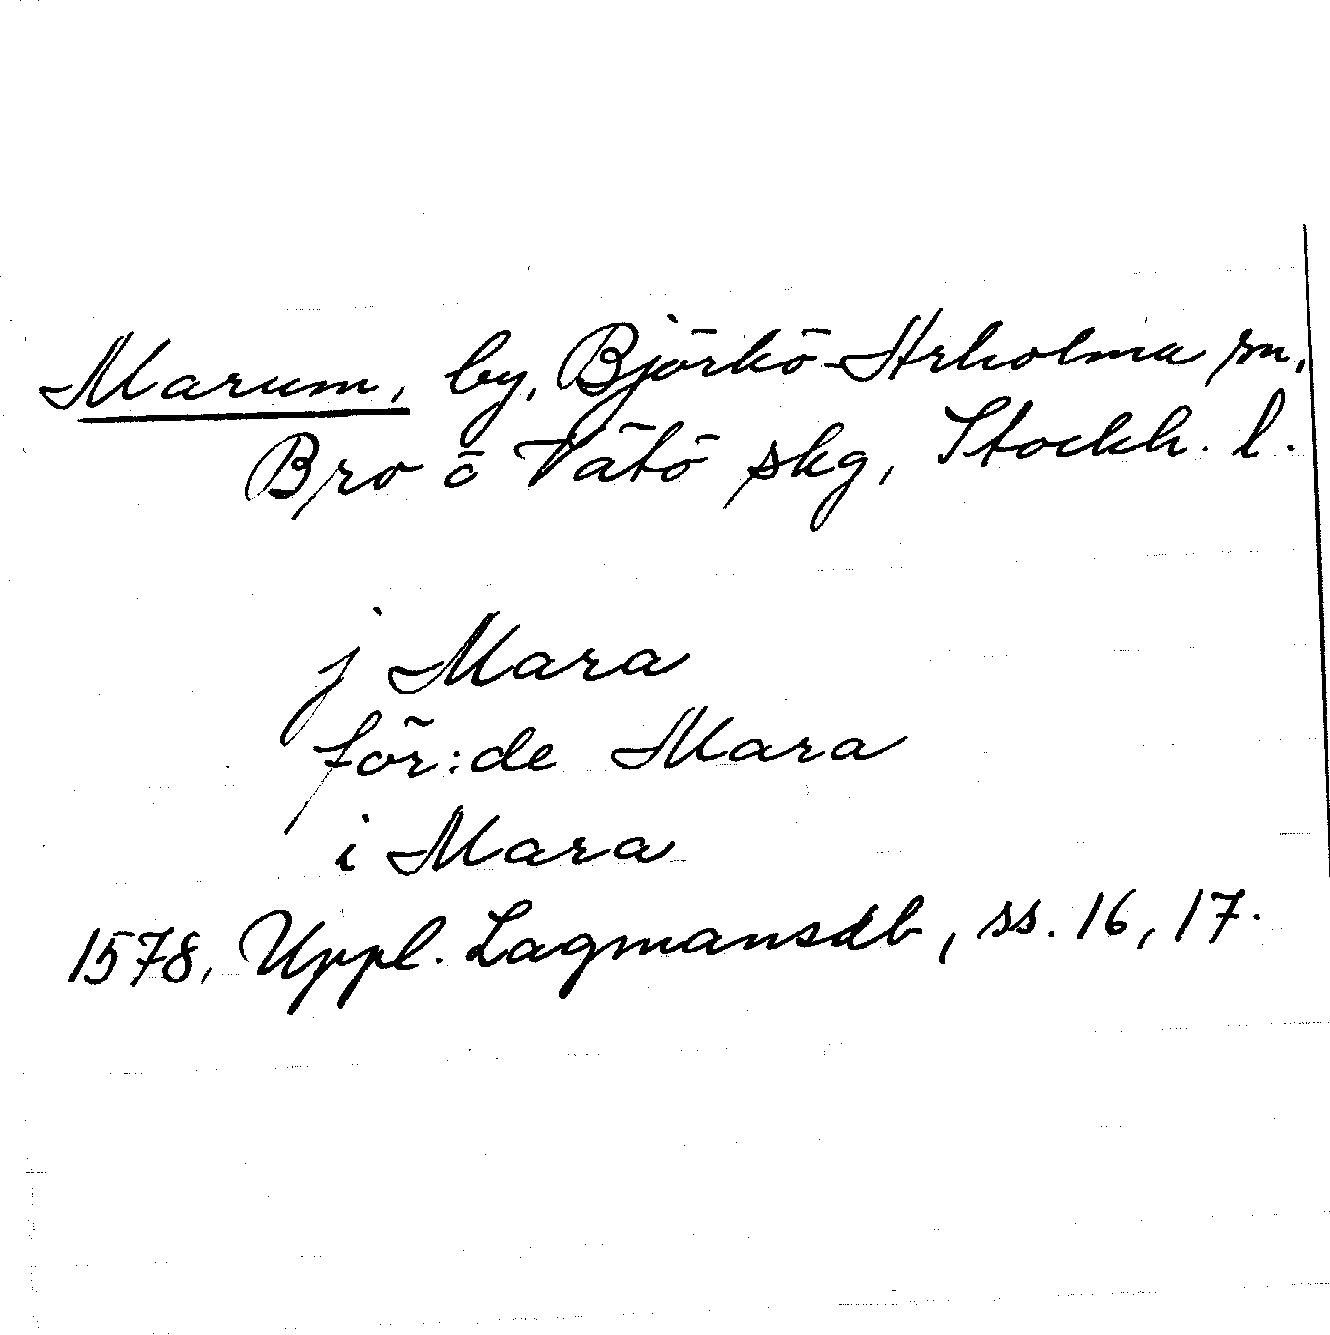 Marum, by, Björkö-Arholma sn,
Bro o Vätö skg, Stockh. l.
j Mara
för:de Mara
i Mara
1578, Uppl. Lagmansdb, ss. 16, 17.